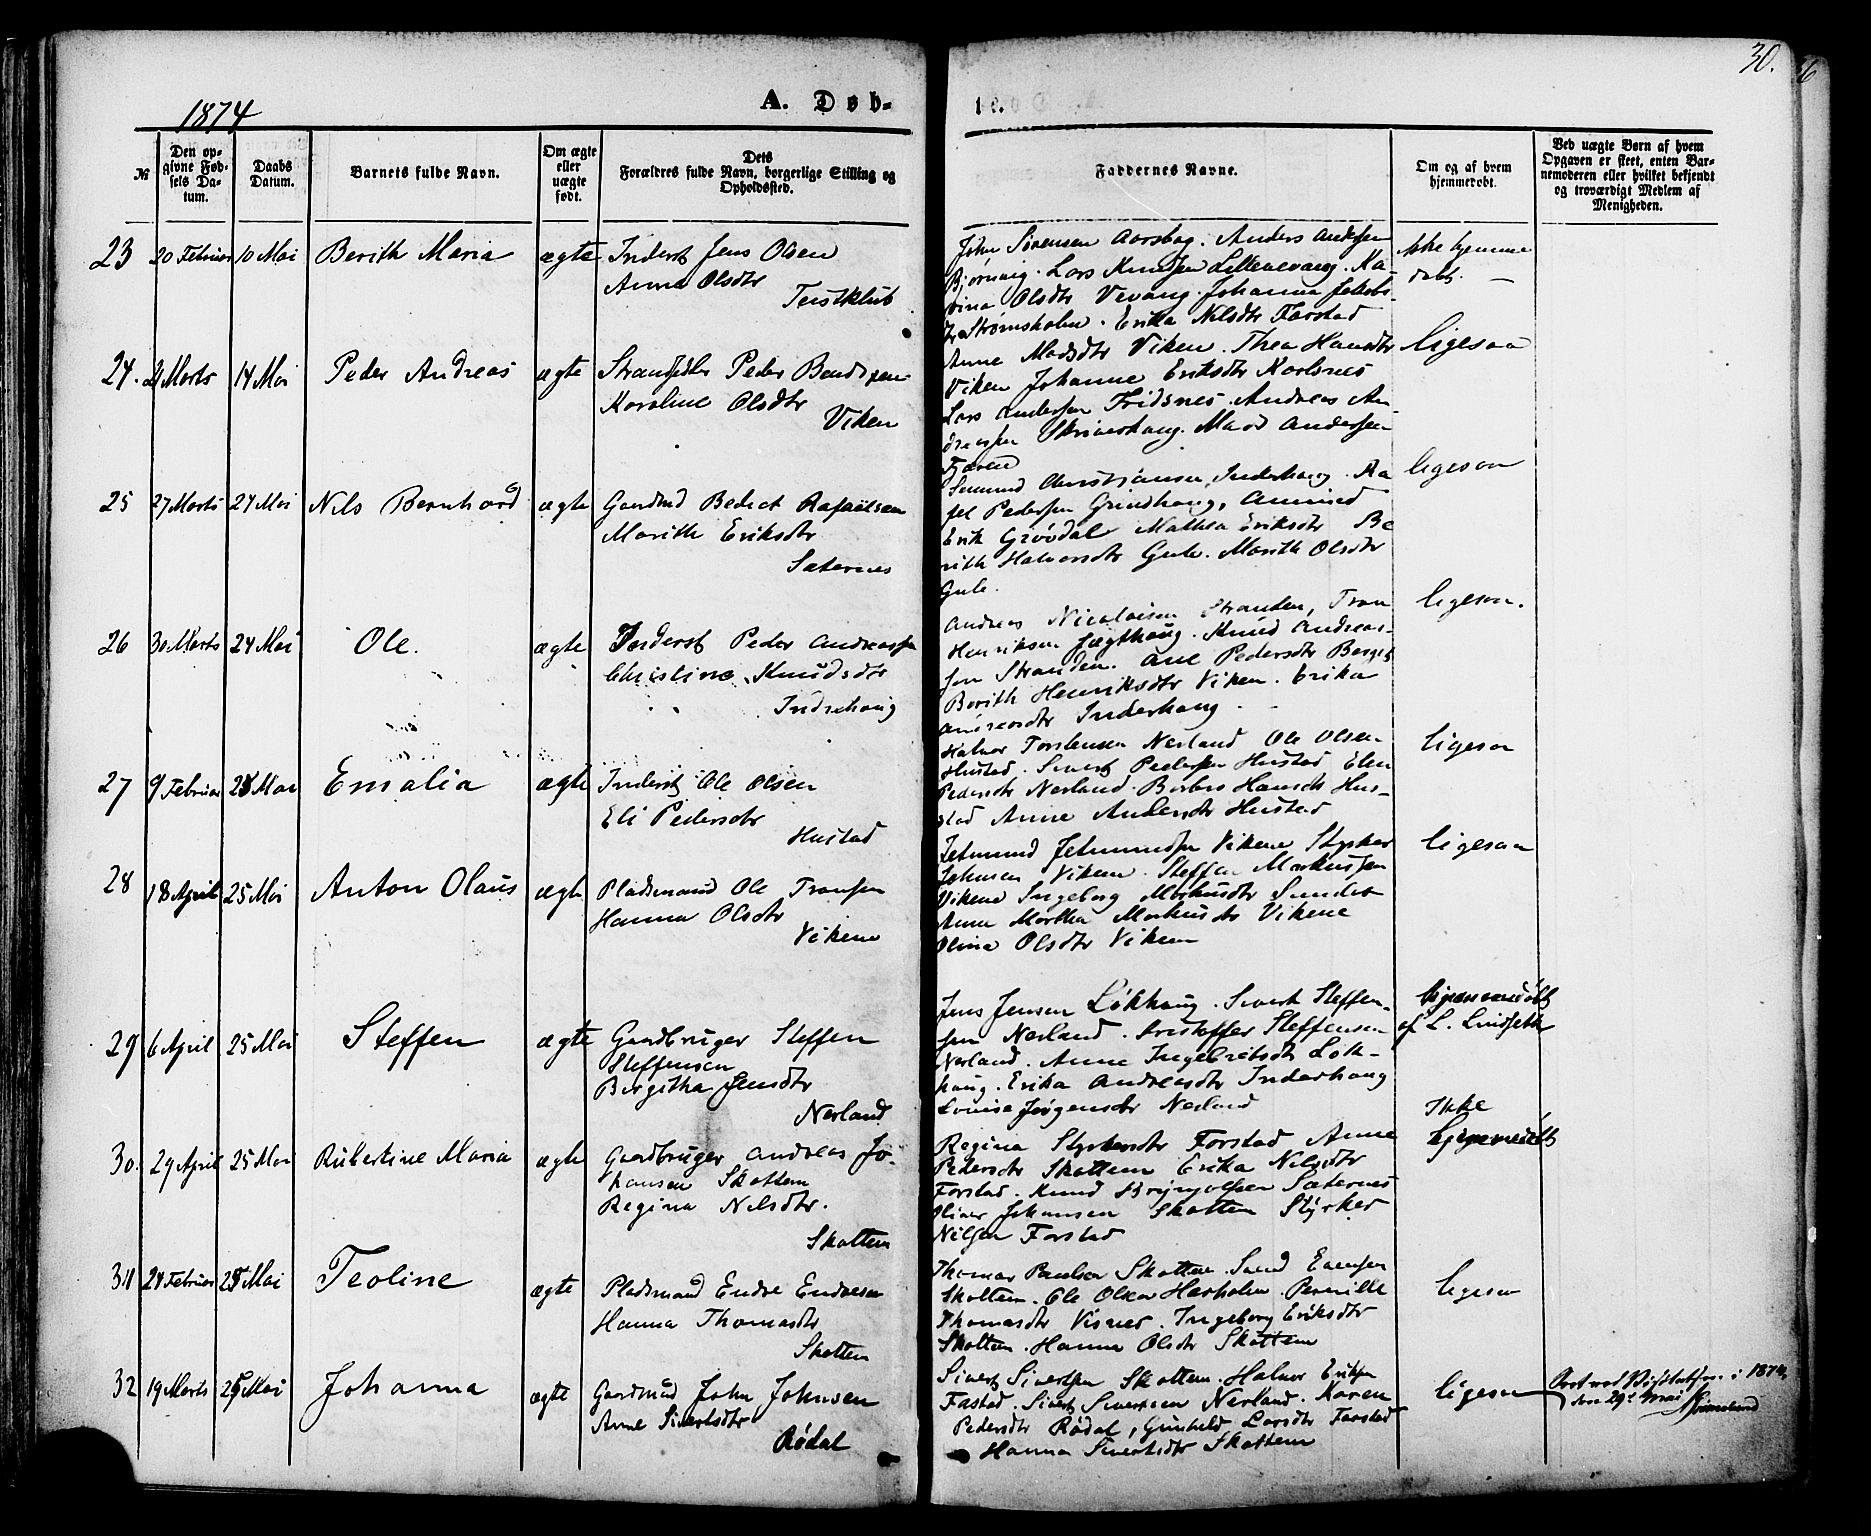 30.
1874
A. Døb-
te.
№
Den op-
givne Fød-
sels Da-
tum.
Daabs
Datum.
Barnets fulde Navn.
Om ægte
eller
uægte
født.
Dets
Forældres fulde Navn, borgerlige Stilling og
Opholdssted.
Faddernes Navne.
Om og af hvem
hjemmedøbt.
Ved uægte Børn af hvem
Opgaven er skeet, enten Bar-
nemoderen eller hvilket bekjendt
og troværdigt Medlem af
Menigheden.
23 20 Februar 10 Mai Berith Maria ægte Inderst Jens Olsen
Anna Olsdtr
John Sørensen Anders Andersen
Bjørnvig. Lars Knudsen Ka-
rina Olsdtr Vevang. Johanna Jakobs-
dtr Strømsholm. Erika Nilsdtr Farstad
ikke hjemme
døbt. —
24. Marts 14 Mai Peder Andreas ægte Peder Bendixen
Karoline Olsdtr
Viken
Anne Madsdtr Viken. Thea Hansdtr
Viken Johanne Eriksdtr Karlsnes
Lars Andersen Andreas An-
dreassen Skriverhaug. Andersen
ligesaa
25 27 Marts 24 Mai Nils Bernhard ægte Gaardmd Rafaelsen
Marith Eriksdtr
Sæternes
Christiansen Inderhaug. Aa
Pedersen Grindhaug,
Erik Mathea Eriksdtr Be
rith Halvorsdtr Gule. Marith Olsdtr
Gule.
ligesaa
26 30 Marts 24 Mai Ole. ægte Inderst Peder Andreassen
Christine Knudsdtr
Indrehaug
Andreas Nicolaisen Stranden, Tron
Henriksen Knud Andreas-
sen Stranden. Ane Pedersdtr
Berith Henriksdtr Viken. Erika
Andreasdtr Inderhaug.
ligesaa.
27 9 Februar Mai Emalia ægte Inderst Ole Olsen
Eli Pedersdtr
Hustad
Halvor Torstensen Nerland Ole Olsen
Hustad. Sivert Pedersen Hustad Elen
Pedersdtr Nerland Hansdtr Hus-
stad Anne Andersdtr Hustad
ligesaa
28 18 April 25 Mai Anton Olaus ægte Pladsmand Ole Tronsen
Hanna Olsdtr
Vikene
Jetmund Jetmundsen Vikene Styrker
Johnsen Vikene. Steffen Markussen
Vikene Ingeborg Markusdtr Sundet
Anne Martha Markusdtr Vikene
Olina Olsdtr Viken
ligesaa
29 6 April 25 Mai Steffen ægte Gaardbruger Steffen
Steffensen
Birgitha Jensdtr
Nerland
Jens Jensen Løkhaug. Sivert Steffen-
sen Nerland. Kristoffer Steffensen
Nerland. Anne Ingebretsdtr Løk-
haug. Erika Andreasdtr Inderhaug
Louise Jørgensdtr Nerland
hjemmedøbt
af L.
30. 29 April 25 Mai Rubertine Maria ægte Gaardbruger Andreas Jo-
hansen Skottem
Regina Nilsdtr.
Skottem
Regina Styrkersdtr Forstad Anne
Pedersdtr Skottem Erika Nilsdtr
Forstad. Knud Brynjolfsen Sæternes
Oliver Johansen Skottem Styrker
Nilsen Forstad
Ikke
hjemmedøbt
31 24 Februar Mai Teoline ægte Pladsmand Endre Endresen
Hanna Thomasdtr
Skottem
Thomas Paulsen Skottem.
Skottem. Ole Olsen Harholm. Pernille
Thomasdtr Visnes. Ingeborg Eriksdtr
Skottem. Hanna Olsdtr Skottem
ligesaa
32 19 Marts Mai Johanna ægte Gaardmd John Johnsen
Anne Sivertsdtr
Rødal
Sivert Sivertsen Skottem. Halvor Eriksen
Fastad. Sivert Sivertsen Nerland. Karen
Pedersdtr Rødal, Gunhild Larsdtr Farstad
Hanna Sivertsdtr Skottem
ligesaa
i 1874,
den 29de Mai